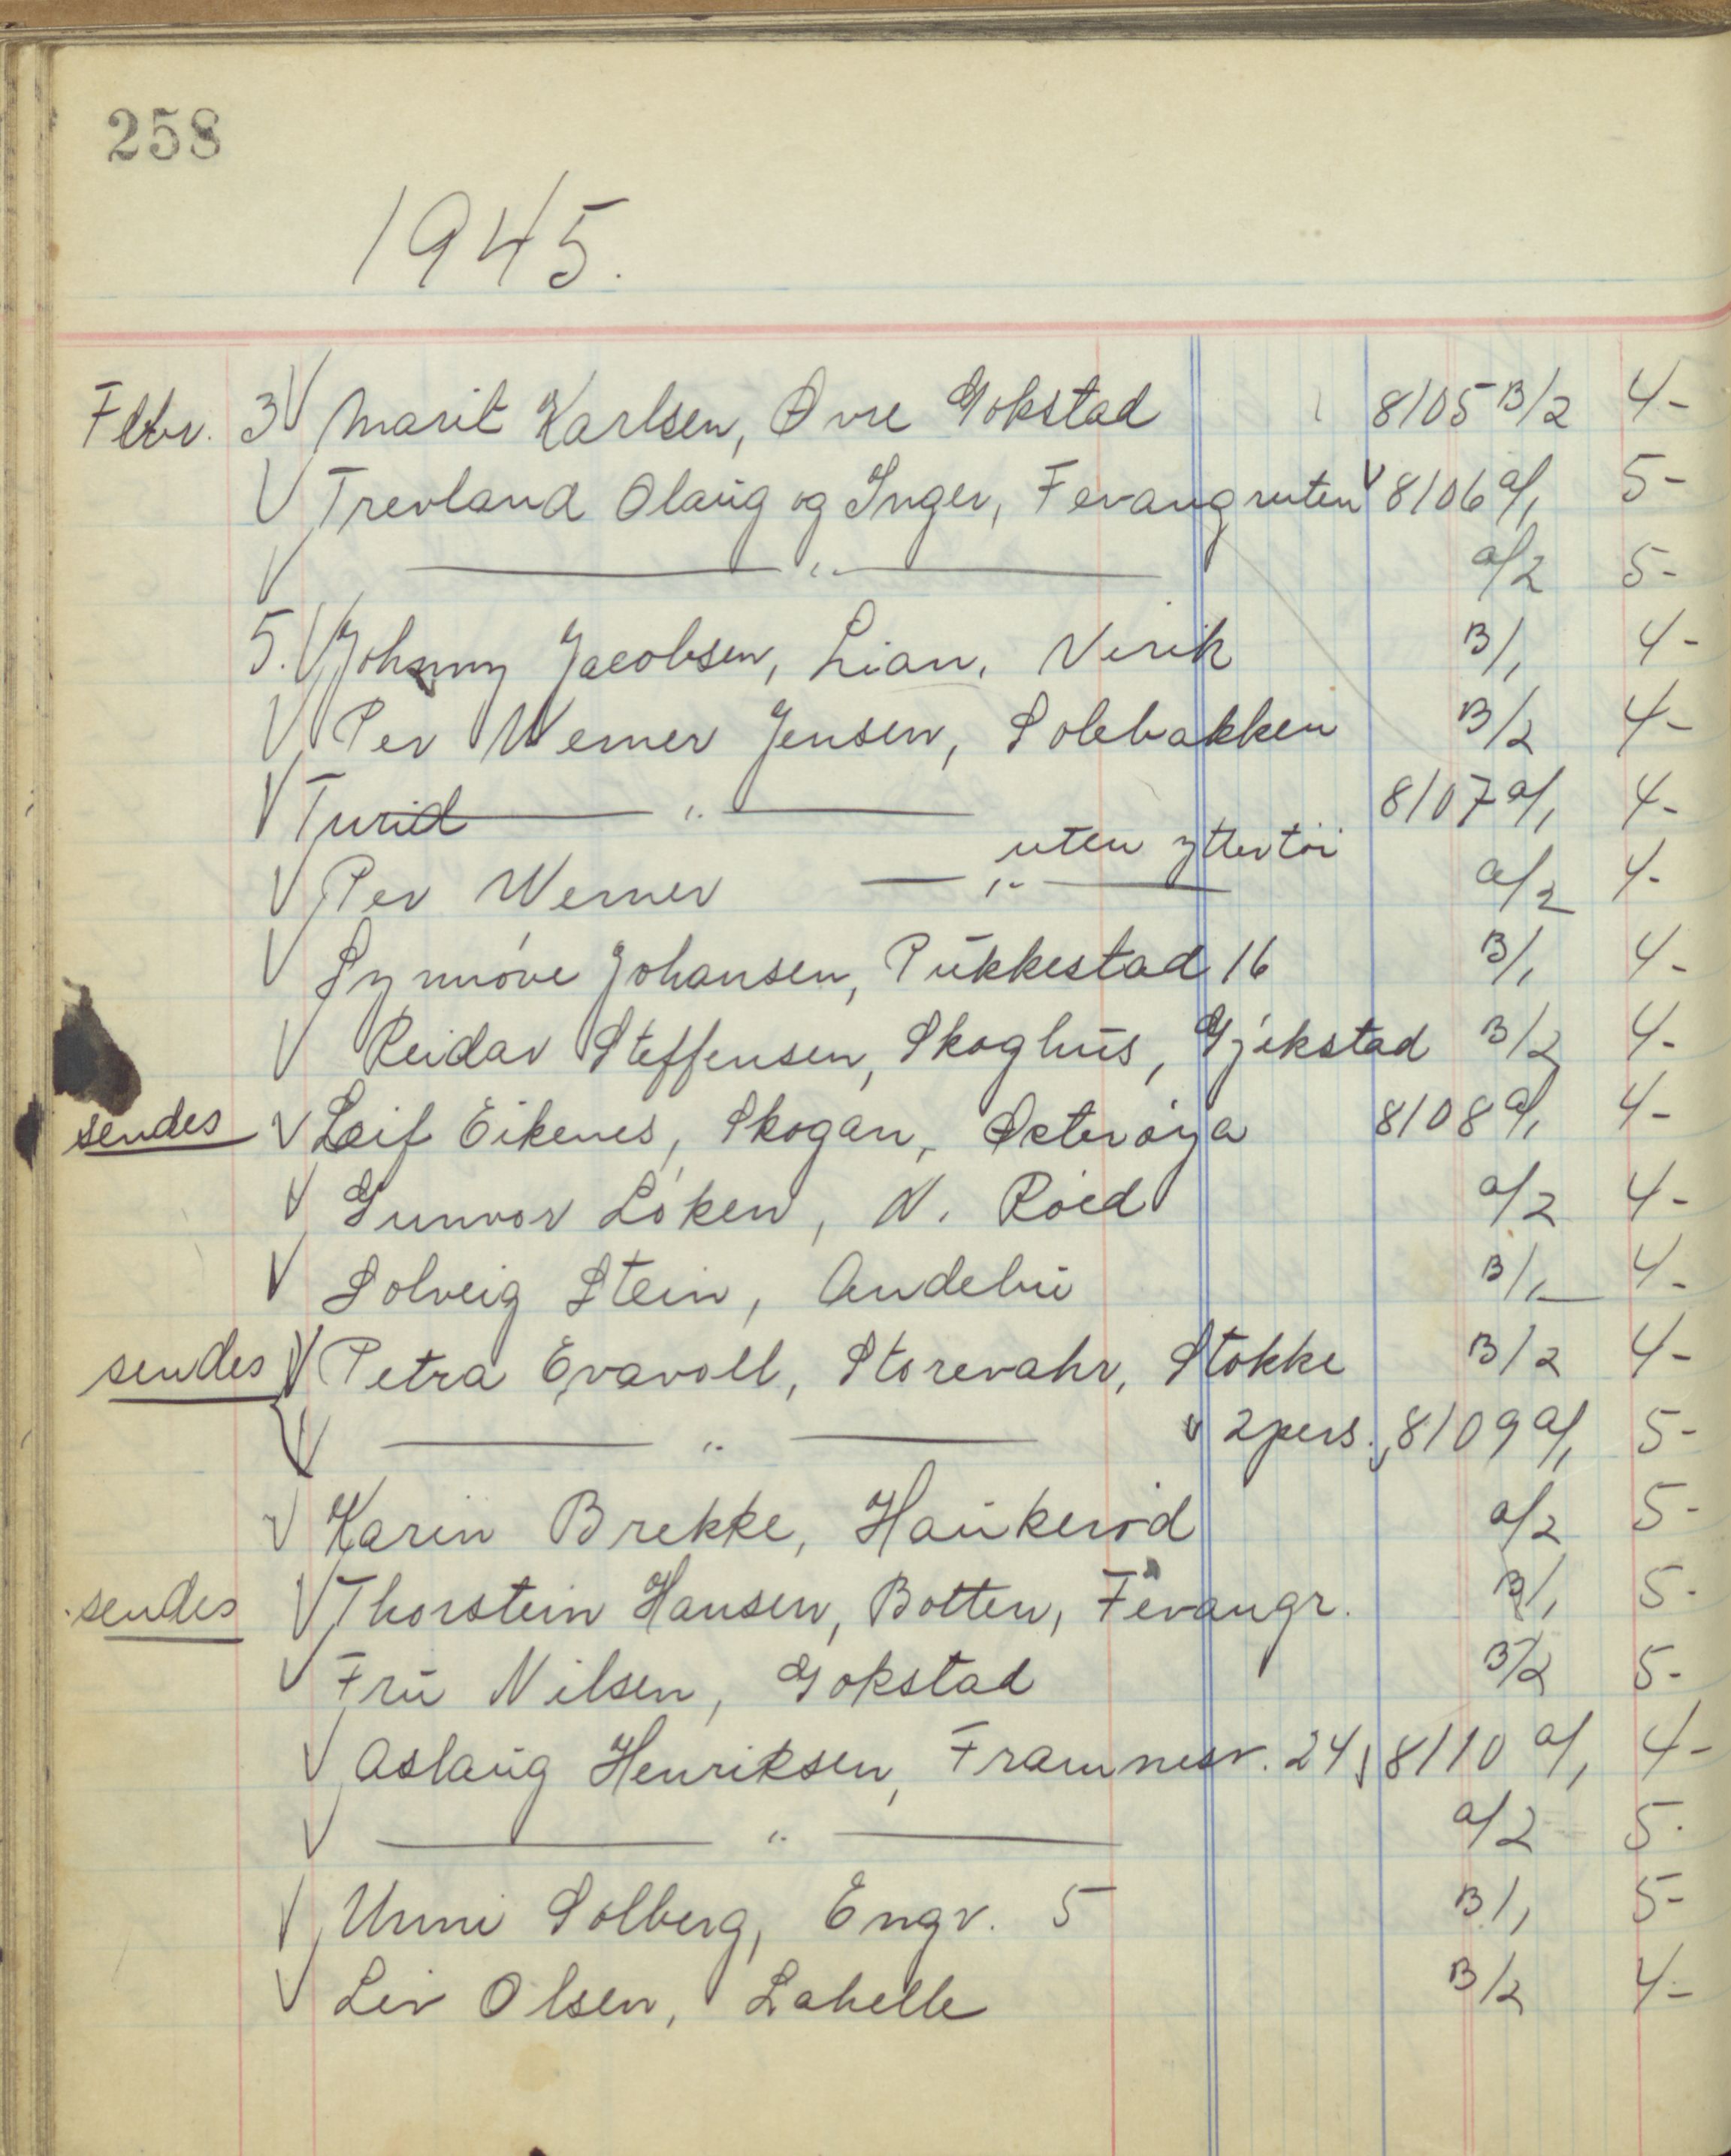 258
1945.
Febr. 3 V Marit Karlsen, Øvre Gokstad 8105 B/2 4-
V Trevland Olaug og Inger, Fevangruten V 8106 a/1 5-
V — " — a/2 5-
5. V Johnny Jacobsen, Lian, Virik B/1 4-
V Per Werner Jensen, Solebakken B/2 4-
V Turid — " — 8107 a/1 4-
uten yttertöi
V Per Werner — " — a/2 4-
V Synnöve Johansen, Pukkestad 16 B/1 4-
V Reidar Steffensen, Skoghus, Gjekstad B/2 4-
sendes V Leif Eikenes, Skogan, Østeröya 8108 a/1 4-
V Gunvor Löken, N. Röed a/2 4-
V Solveig Stein, Andebu B/1 4-
sendes V Petra Evavoll, Storevahr, Stokke B/2 4-
V — " — V 2 pers. 8109 a/1 5-
V Karin Brekke, Haukeröd a/2 5-
sendes V Thorstein Hansen, Botten, Fevangr. B/1 5-
V Fru Nilsen, Gokstad B/2 5-
V Aslaug Henriksen, Framnesv. 24 8110 a/1 4-
V — " — a/2 5-
V Unni Solberg, Engv. 5 B/1 5-
V Liv Olsen, Lahelle B/2 4-